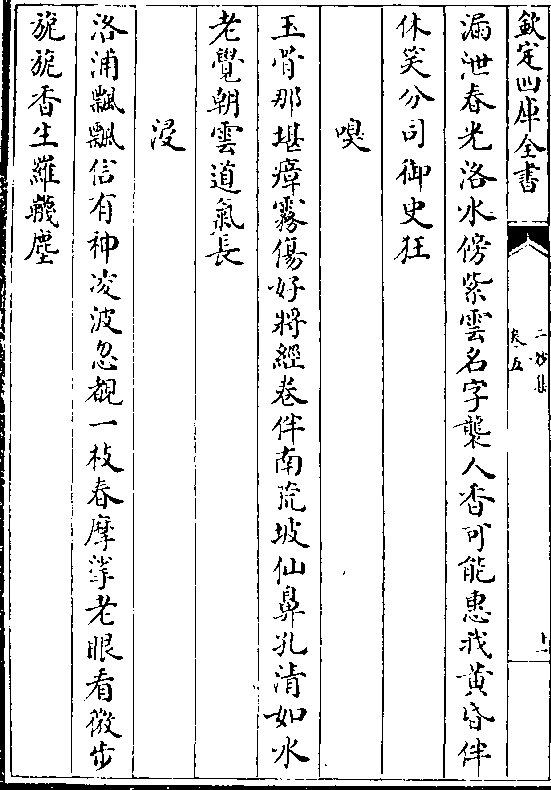 欽定四庫全書
二妙集
卷五
漏泄春光洛水傍紫雲名字襲人香可能惠我黄昏伴
休笑分司御史狂
嗅
玉骨那堪瘴霧傷好將經卷伴南荒坡仙鼻孔清如水
老覺朝雲道氣長
浸
洛浦飄飄信有神凌波忽覩一枝春摩挲老眼看微步
旎旎香生羅襪塵